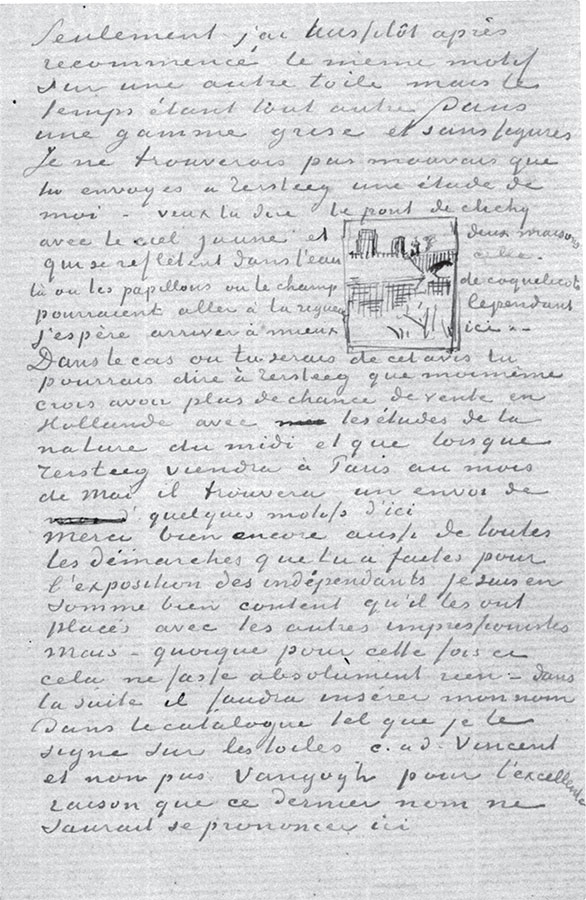 Seulement j'ai aussitôt après
recommencé le même motif
sur une autre toile mais le
temps étant tout autre Dans
une gamme grise et sans figures
Je ne trouverais pas mauvais que
tu envoyes à Tersteeg une étude de
moi – veux tu dire le pont de clichy
avec le ciel jaune et deux maisons
qui se reflètent dans l'eau celle-
là ou les papillons ou le champ de coquelicots
pourraient aller à la rigueur Cependant
j'espère arriver à mieux ici –
Dans le cas ou tu serais de cet avis tu
pourrais dire à Tersteeg que moi même
crois avoir plus de chance de vente en
Hollande avec les études de la
nature du midi et que lorsque
Tersteeg viendra à Paris au mois
de Mai il trouvera un envoi de
d' quelques motifs d'ici
Merci bien encore aussi de toutes
les démarches que tu a faites pour
l'exposition des indépendants je suis en
somme bien content qu'il les ont
placés avec les autres impressionistes
Mais – quoique pour cette fois ci
cela ne fasse absolument rien – dans
la suite il faudra insérer mon nom
dans le catalogue tel que je le
signe sur les toiles c.a.d. Vincent
et non pas Vangogh pour l'excellente
raison que ce dernier nom ne
saurait se prononcer ici